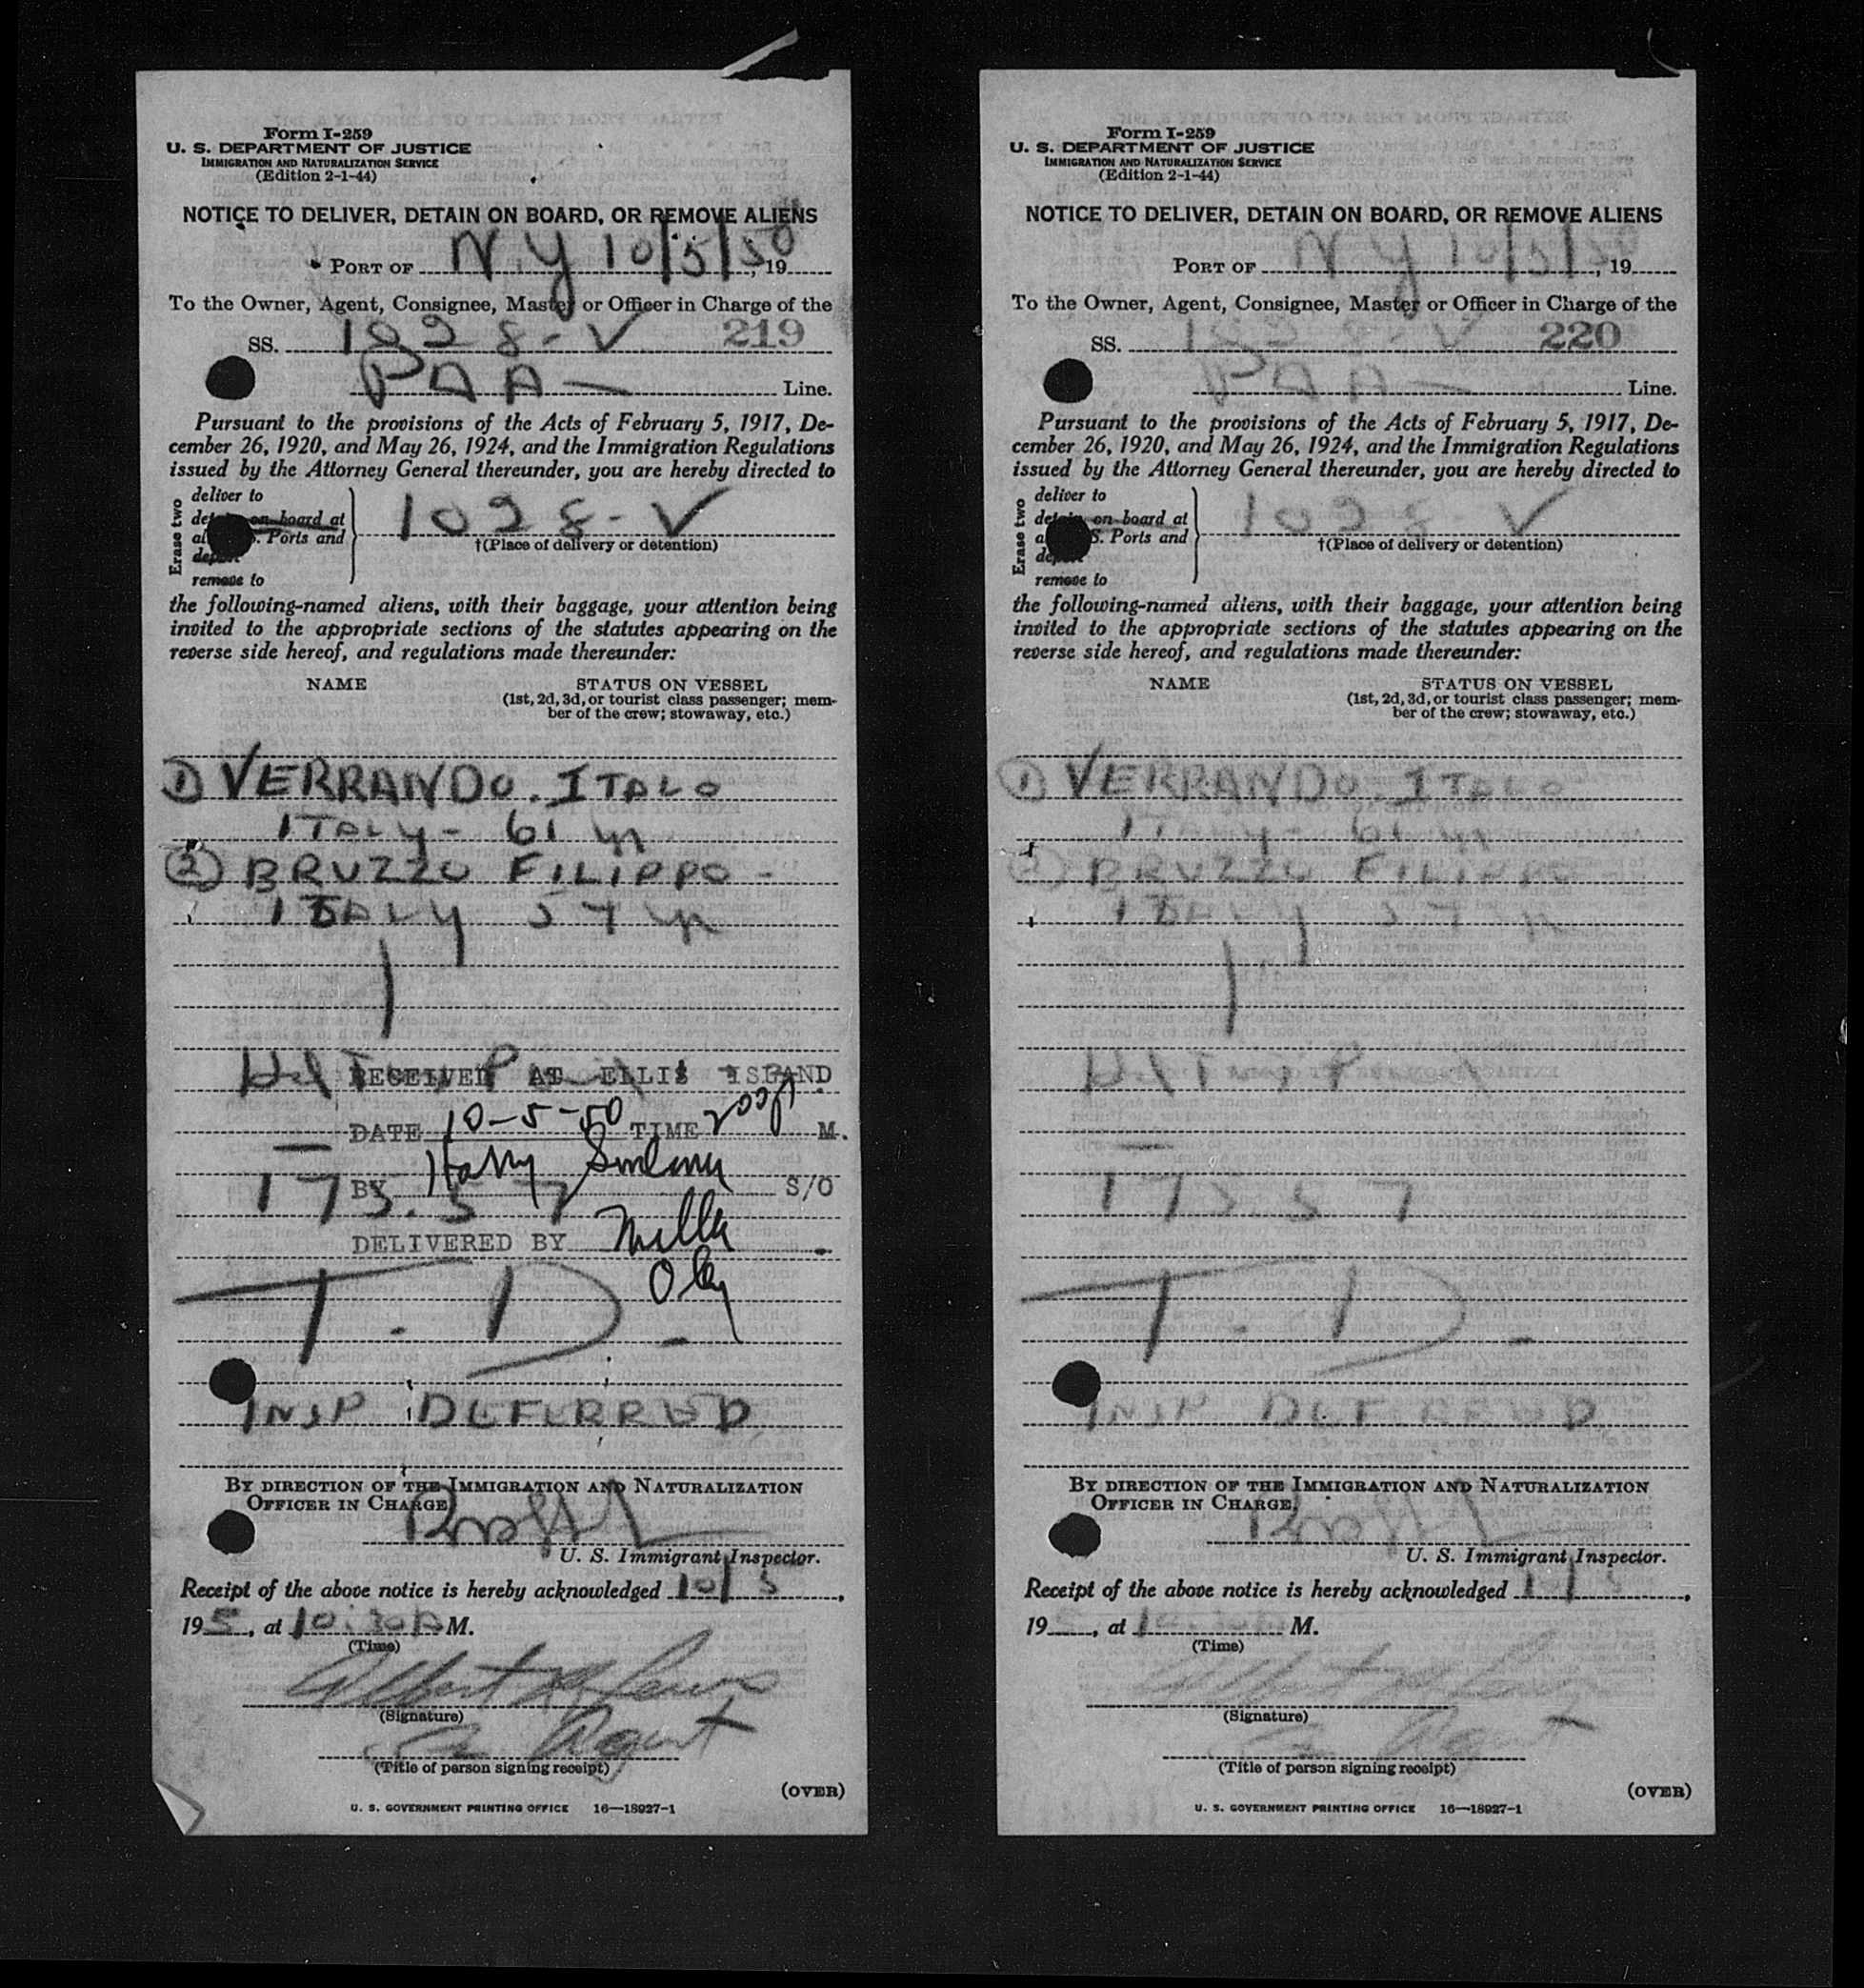 Form I-259
U. S. DEPARTMENT OF JUSTICE
IMMIGRATION AND NATURALIZATION SERVICE
(Edition 2-1-44)
NOTICE TO DELIVER, DETAIN ON BOARD, OR REMOVE ALIENS
PORT OF N.Y 10/5/50, 19
To the Owner, Agent, Consignee, Master or Officer in Charge of the
SS. 1028-V 219
PAA— Line.
Pursuant to the provisions of the Acts of February 5, 1917, De-
cember 26, 1920, and May 26, 1924, and the Immigration Regulations
issued by the Attorney General thereunder, you are hereby directed to
Erase two
deliver to
on board at 1028-V
Ports and
†(Place of delivery or detention)
remove to
the following-named aliens, with their baggage, your attention being
invited to the appropriate sections of the statutes appearing on the
reverse side hereof, and regulations made thereunder:
NAME STATUS ON VESSEL
(1st, 2d, 3d, or tourist class passenger; mem-
ber of the crew; stowaway, etc.)
1) VERRANDO. ITALO
ITALY - 61 yr
(2) BRUZZO FILIPPO -
ITALY 57 yr
RECEIVED AT ELLIS ISLAND
DATE 10-5-50 TIME 200P. M.
BY Harry S/O
175.57
DELIVERED BY
T. D.
INSP DEFERRED
BY DIRECTION OF THE IMMIGRATION AND NATURALIZATION
OFFICER IN CHARGE,
U. S. Immigrant Inspector.
Receipt of the above notice is hereby acknowledged 10/5,
195, at 10:30A M.
(Time)
Albert
(Signature)
Agent
(Title of person signing receipt)
(OVER)
U. S. GOVERNMENT PRINTING OFFICE 16—18927-1
Form I-259
U. S. DEPARTMENT OF JUSTICE
IMMIGRATION AND NATURALIZATION SERVICE
(Edition 2-1-44)
NOTICE TO DELIVER, DETAIN ON BOARD, OR REMOVE ALIENS
PORT OF N.Y 10/5/50, 19
To the Owner, Agent, Consignee, Master or Officer in Charge of the
SS. 1028-V 220
PAA— Line.
Pursuant to the provisions of the Acts of February 5, 1917, De-
cember 26, 1920, and May 26, 1924, and the Immigration Regulations
issued by the Attorney General thereunder, you are hereby directed to
Erase two
deliver to
on board at 1028 V
S. Ports and
†(Place of delivery or detention)
remove to
the following-named aliens, with their baggage, your attention being
invited to the appropriate sections of the statutes appearing on the
reverse side hereof, and regulations made thereunder:
NAME STATUS ON VESSEL
(1st, 2d, 3d, or tourist class passenger; mem-
ber of the crew; stowaway, etc.)
1) VERRANDO. ITALO
ITALY - 61 yr
(2) BRUZZO FILIPPO -
ITALY 57 yr
175.57
T. D.
INSP DEFERRED
BY DIRECTION OF THE IMMIGRATION AND NATURALIZATION
OFFICER IN CHARGE,
U. S. Immigrant Inspector.
Receipt of the above notice is hereby acknowledged 10/5,
19, at 10:30A M.
(Time)
Albert
(Signature)
Agent
(Title of person signing receipt)
(OVER)
U. S. GOVERNMENT PRINTING OFFICE 16—18927-1